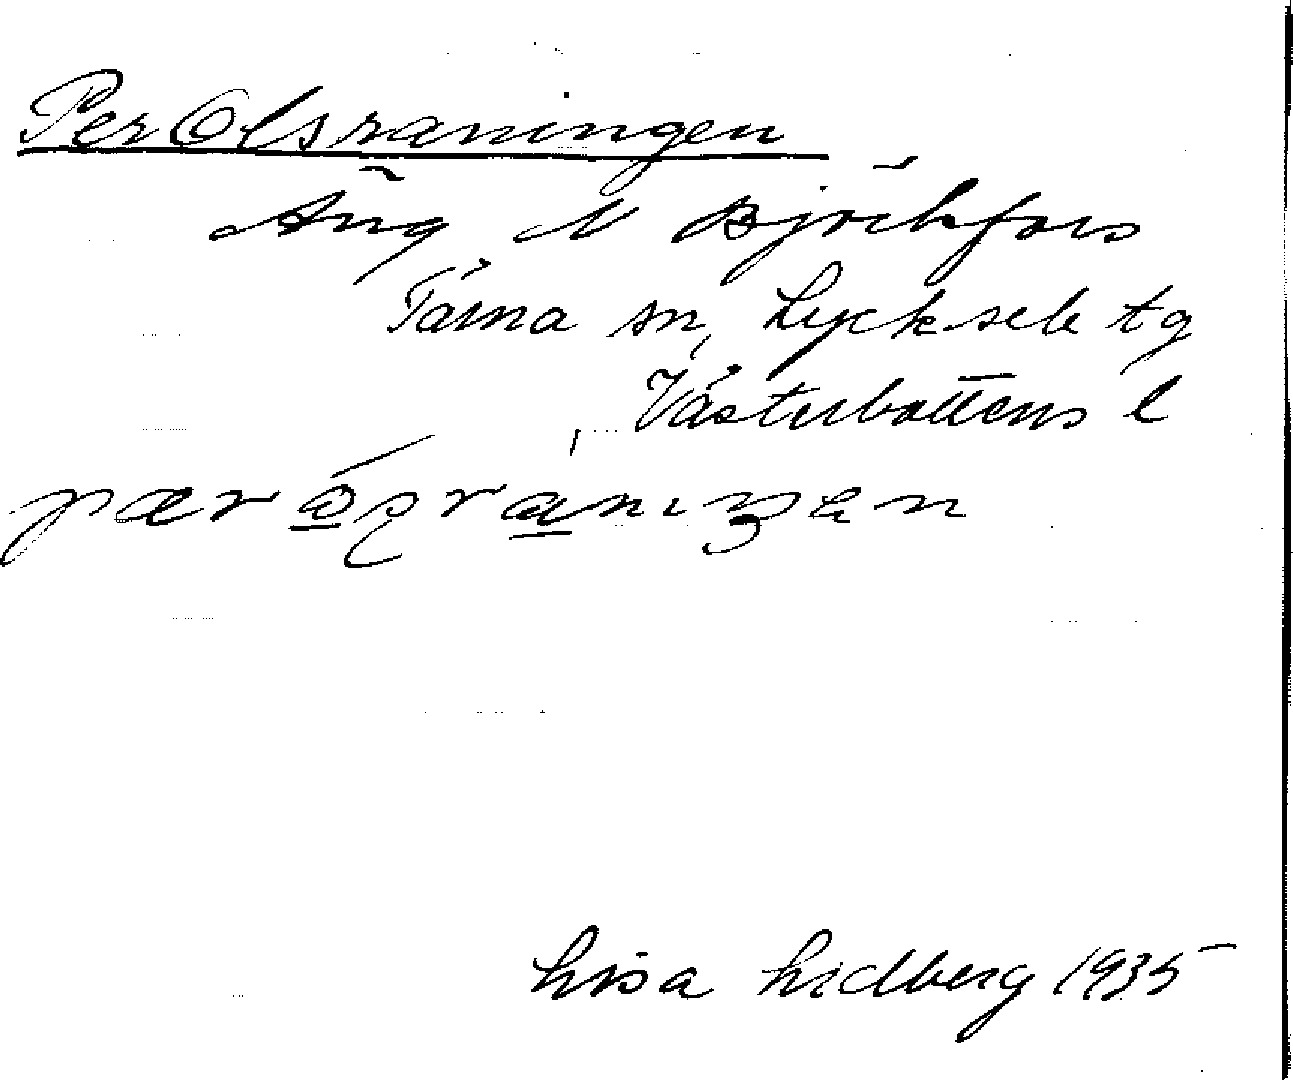 Per Olsraningen
Äng N Björkfors
Tärna sn, Lycksele tg
Västerbottens l
Lisa Lidberg 1935